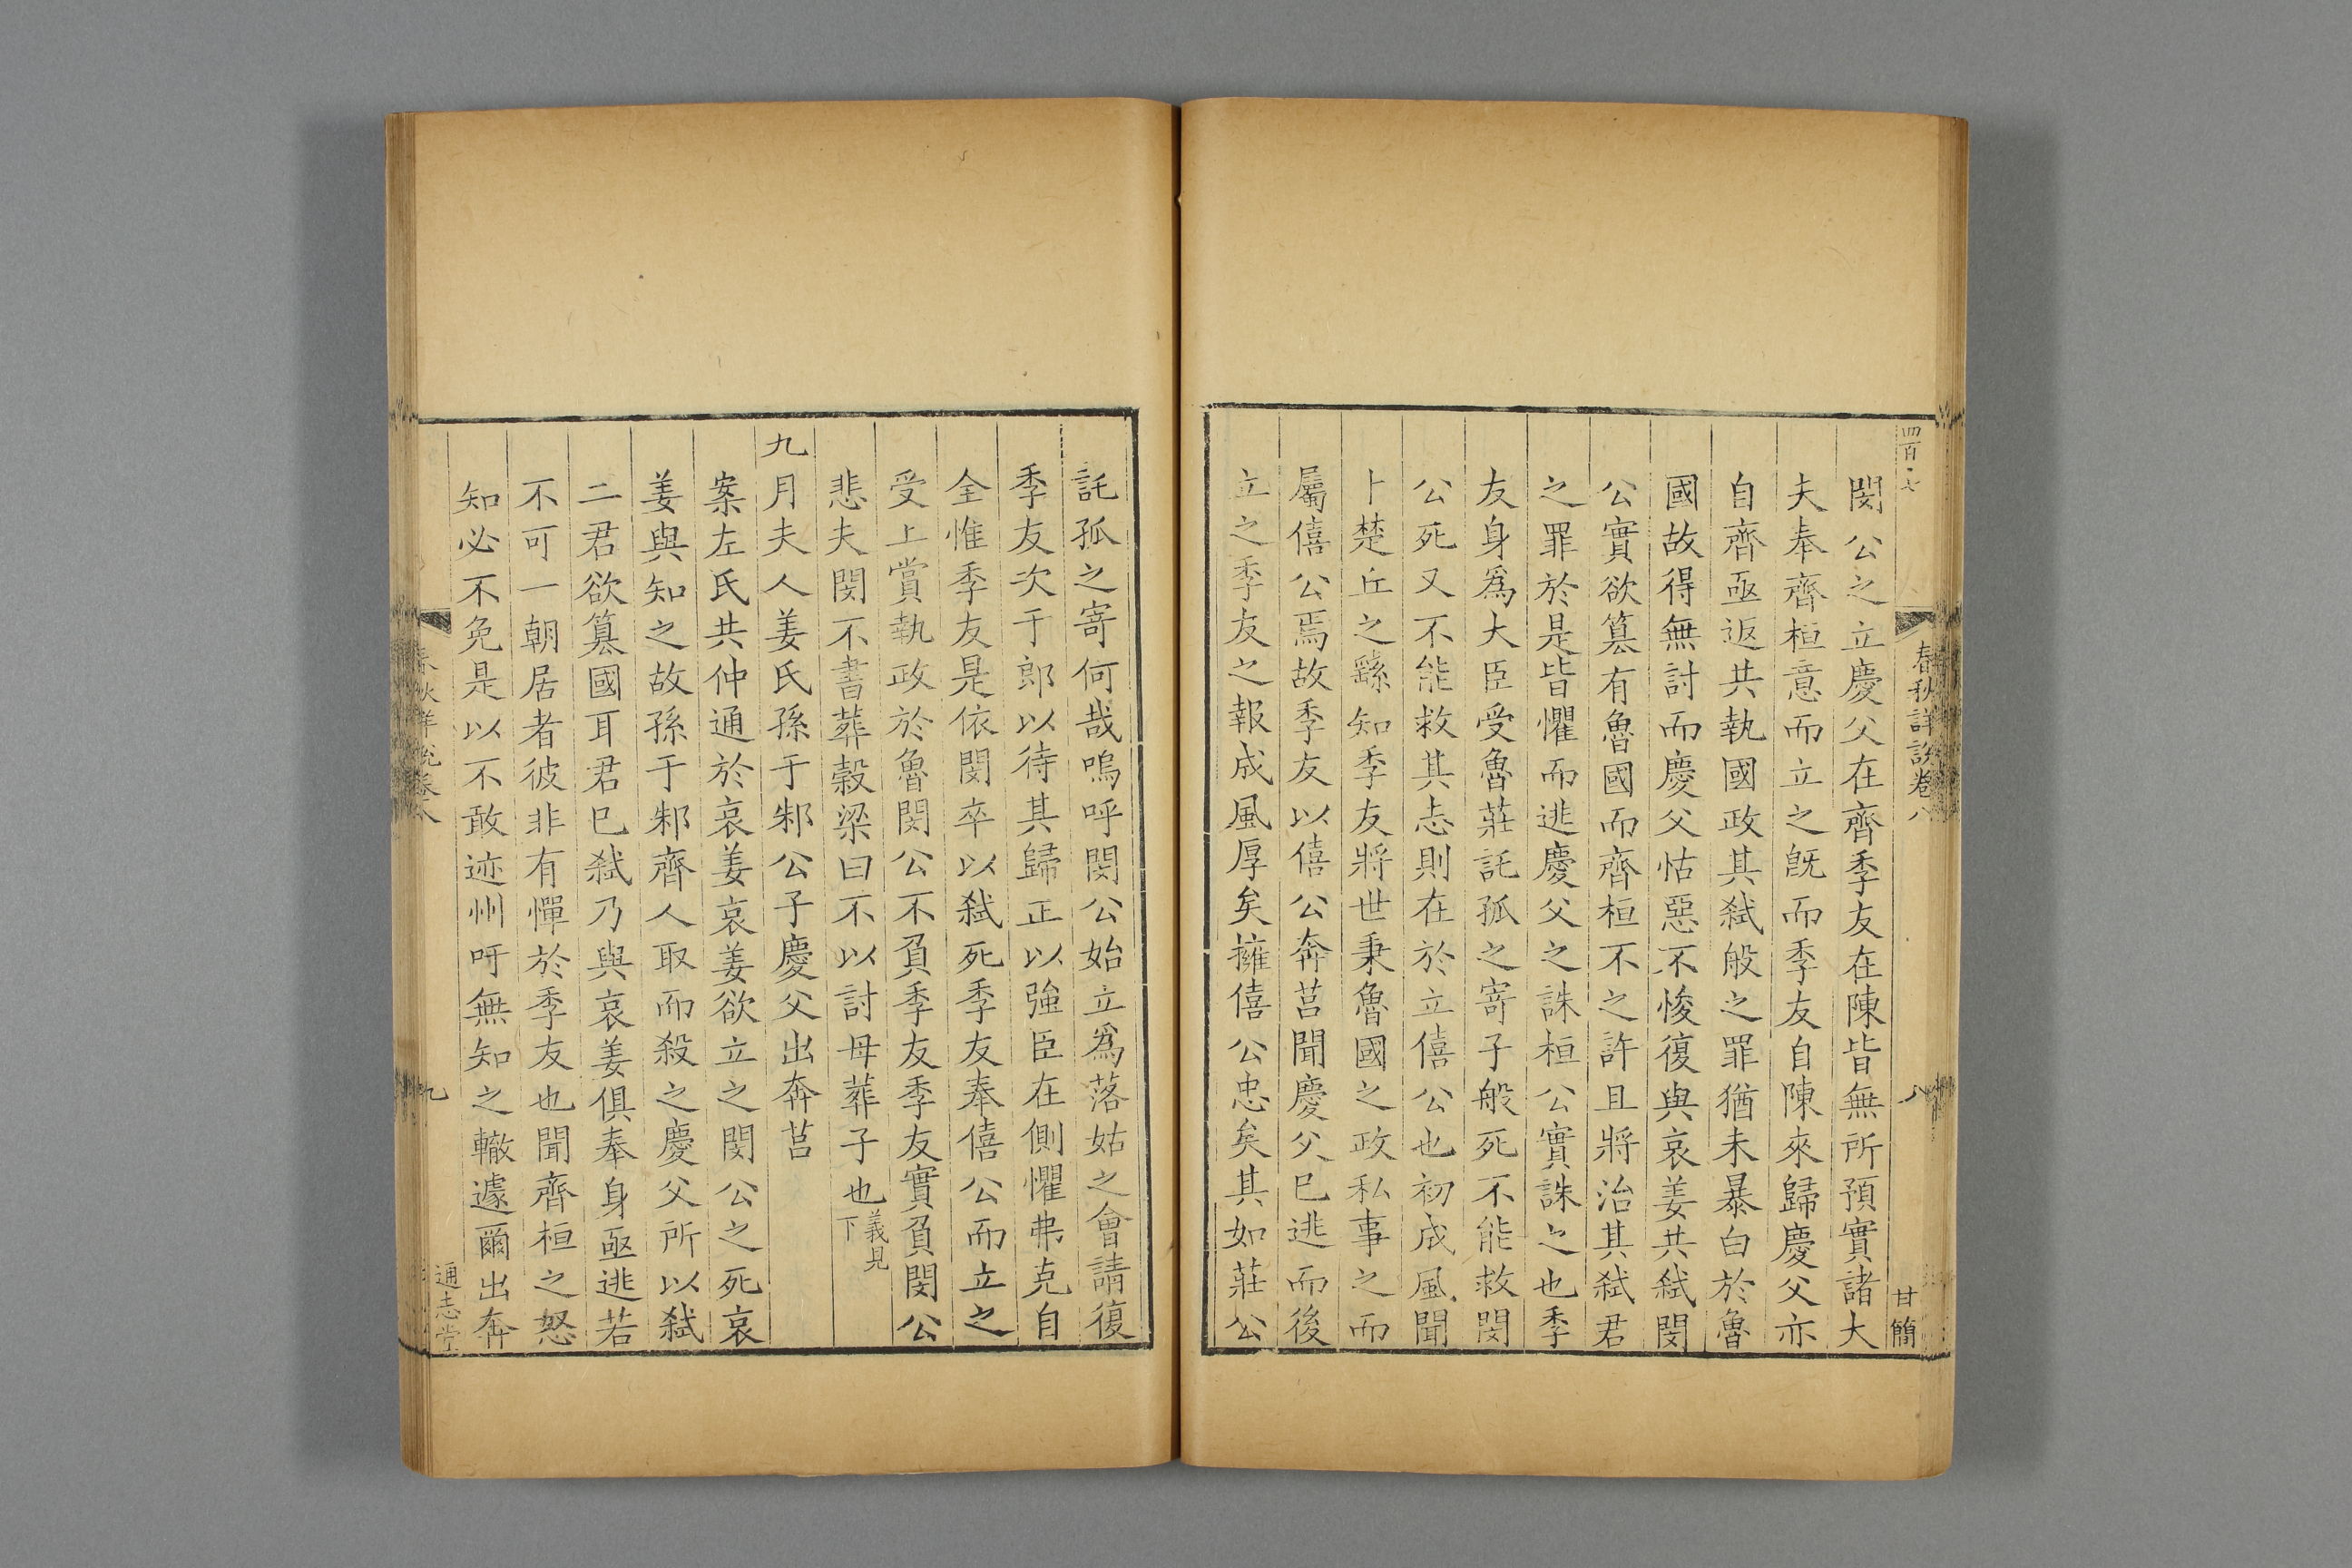 四百七
春秋詳說卷八
八
甘簡
閔公之立慶父在齊季友在陳皆無所預實諸大
夫奉齊桓意而立之旣而季友自陳來歸慶父亦
自齊亟返共執國政其弑般之罪猶未暴白於魯
國故得無討而慶父怙惡不悛復與哀姜共弑閔
公實欲簒有魯國而齊桓不之許且將治其弑君
之罪於是皆懼而逃慶父之誅桓公實誅之也季
友身爲大臣受魯莊託孤之寄子般死不能救閔
公死又不能救其志則在於立僖公也初成風聞
卜楚丘之繇知季友將世秉魯國之政私事之而
屬僖公焉故季友以僖公奔莒聞慶父巳逃而後
立之季友之報成風厚矣擁僖公忠矣其如莊公
託孤之寄何哉嗚呼閔公始立爲落姑之會請復
季友次于郎以待其歸正以強臣在側懼弗克自
全惟季友是依閔卒以弑死季友奉僖公而立之
受上賞執政於魯閔公不負季友季友實負閔公
悲夫閔不書葬穀梁曰不以討母葬子也義見下
九月夫人姜氏孫于邾公子慶父出奔莒
案左氏共仲通於哀姜哀姜欲立之閔公之死哀
姜與知之故孫于邾齊人取而殺之慶父所以弑
二君欲簒國耳君巳弑乃與哀姜俱奉身亟逃若
不可一朝居者彼非有憚於季友也聞齊桓之怒
知必不免是以不敢迹州吁無知之轍遽爾出奔
春秋詳說卷八
九
通志堂